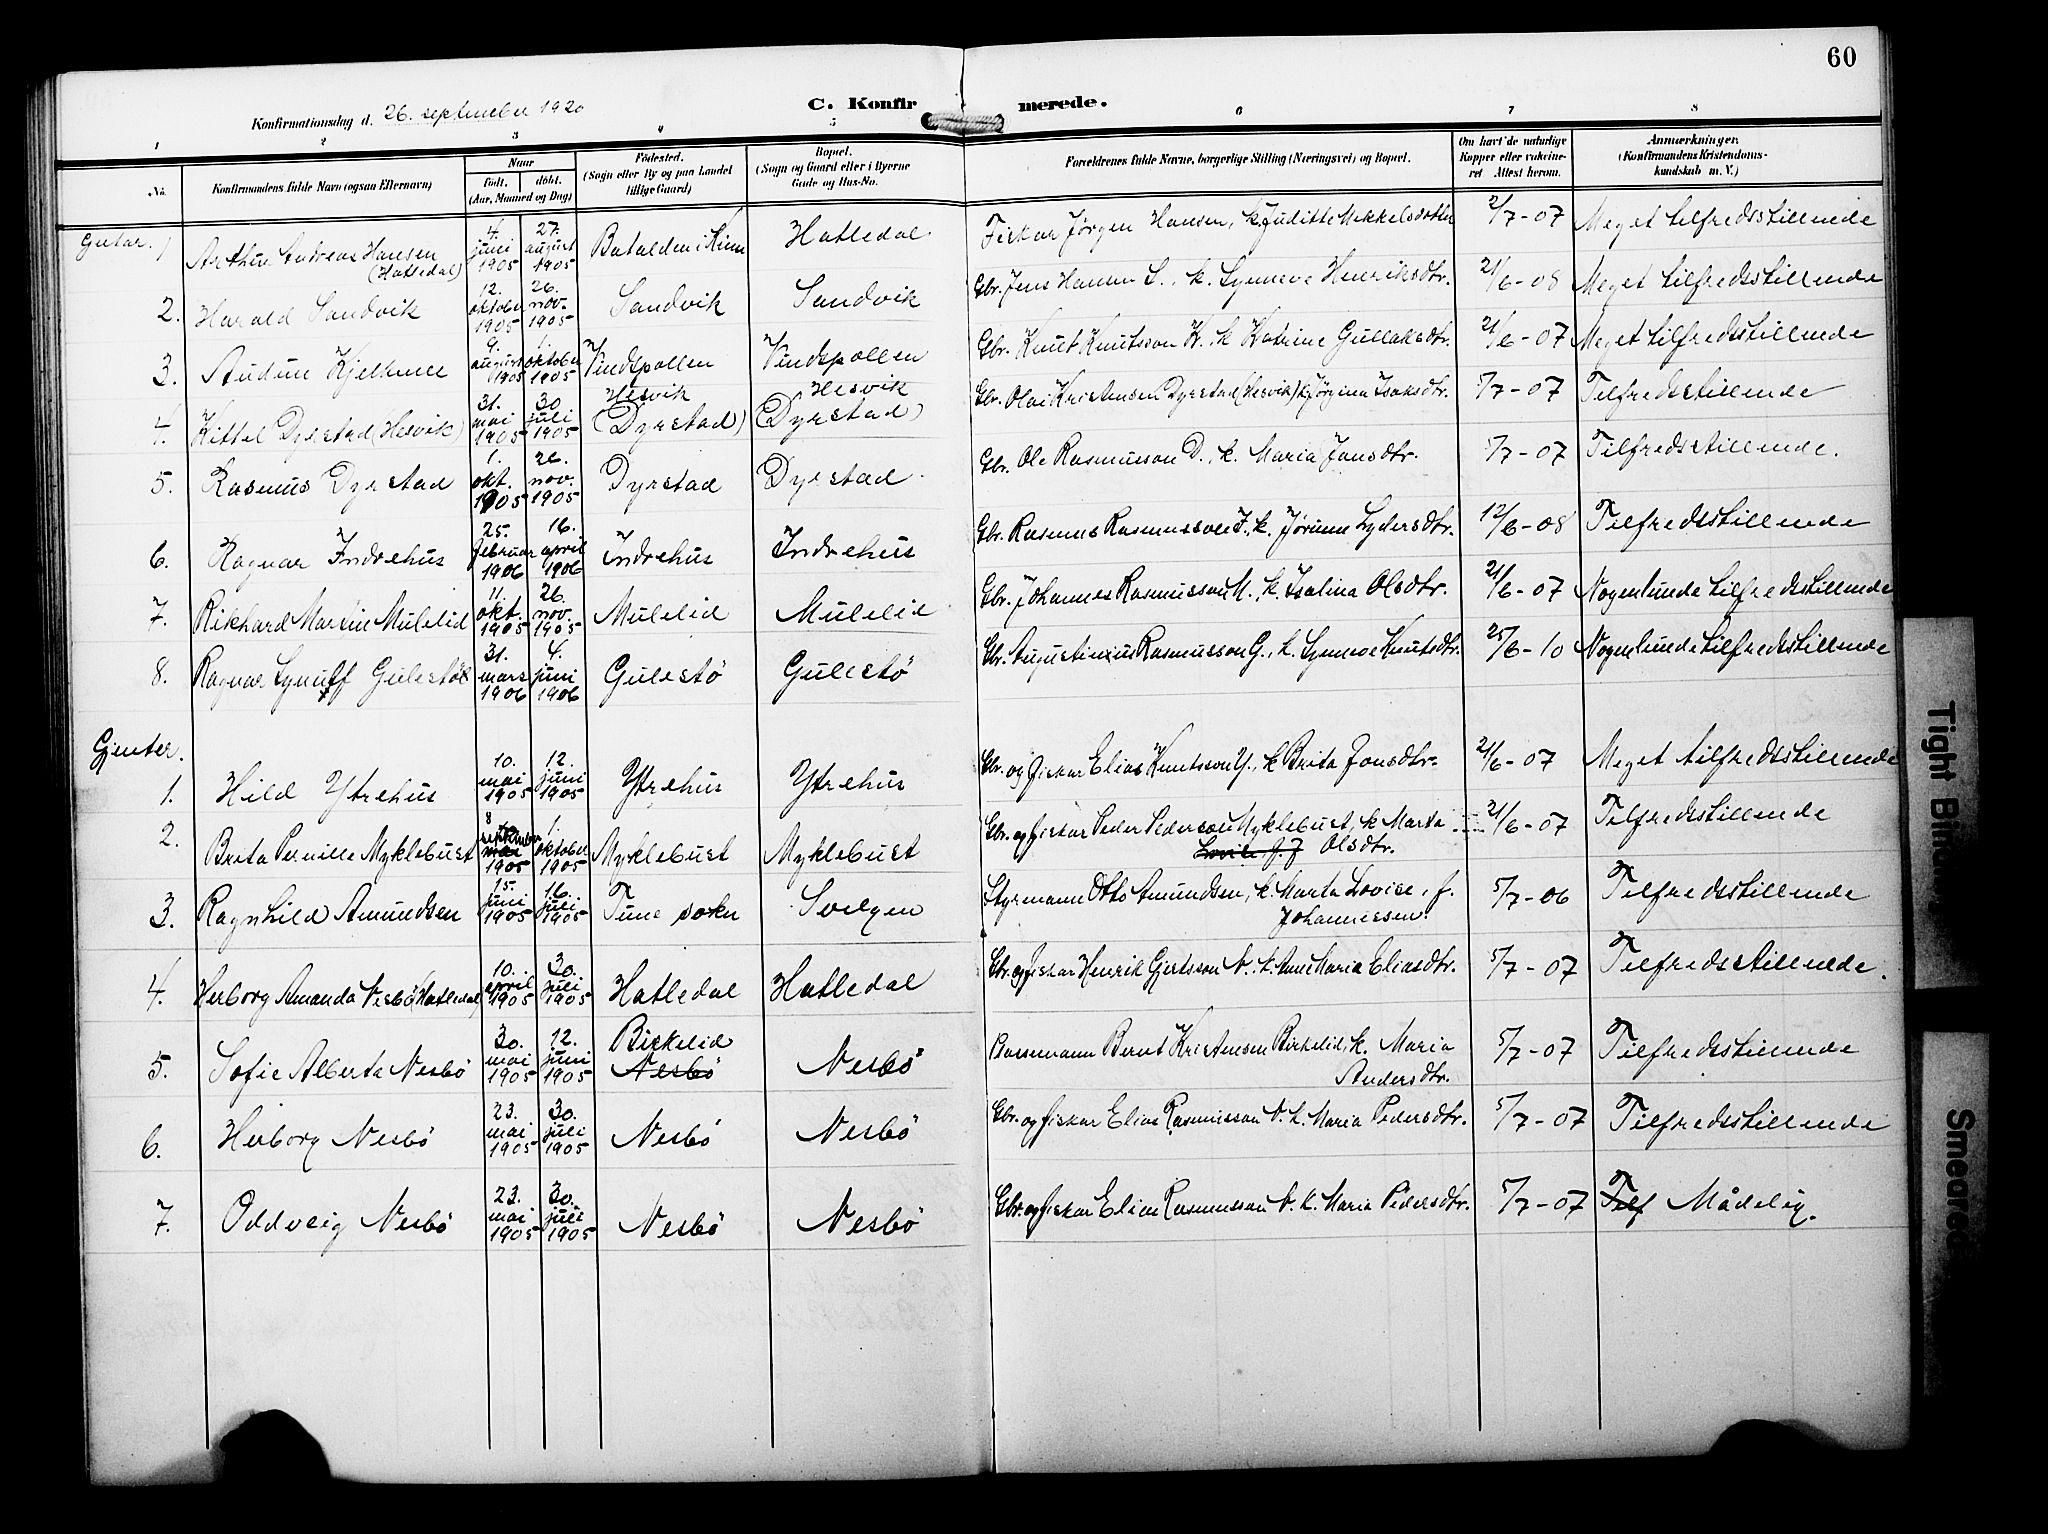 60
C. Konfirmerede.
Konfirmationsdag d. 26. september 1920
1 2 3 4 5 6 7 8
No. Konfirmandens fulde Navn (ogsaa Efternavn) Naar født, døbt, (Aar, Maaned og Dag) Fødested. (Sogn eller By og paa Landet tillige Gaard) Bopæl. (Sogn og Gaard eller i Byerne Gade og Hus-No. Forældrenes fulde Navne, borgerlige Stilling (Næringsvei) og Bopæl. Om havt de naturlige Kopper eller vaccineret Attest herom. Anmærkninger. (Konfirmandens Kristendomskundskab m. V.)
Gutar.
1 Arthur Andreas Hansen (Hatledal) 4. juni 1905 27. august 1905 Batalden i Kinn Hatledal Fiskar Jørgen Hansen, k. Juditte Mikkelsdotter 2/7-07 Meget tilfredsstillende
2. Harald Sandvik 12. oktober 1905 26. nov. 1905 Sandvik Sandvik Gbr. Jens Hansen S., k. Synneve Henriksdtr. 21/6-08 Meget tilfredsstillende
3. Audun Kjelkenes 9. august 1905 1. oktober 1905 Vindspollen Vindspollen Gbr. Knut Knutsson K. k. Katrine Gullaksdtr. 21/6-07 Meget tilfredsstillende
4. Kittel Dyrstad (Hesvik) 31. mai 1905 30. juli 1905 Hesvik (Dyrstad) Hesvik (Dyrstad) Gbr. Olai Kristensen Dyrstad (Hesvik) k. Jørgina Isaksdtr. 5/7-07 Tilfredsstillende
5. Rasmus Dyrstad 1. okt. 1905 26. nov. 1905 Dyrstad Dyrstad Gbr. Ole Rasmusson D., k. Maria Jonsdtr. 5/7-07 Tilfredsstillende.
6. Ragnar Indrehus 25. februar 1906 16. april 1906 Indrehus Indrehus Gbr. Rasmus Rasmusson I., k. Jørunn Lydersdtr. 12/6-08 Tilfredsstillende
7. Rikhard Martin Mulelid 11. okt. 1905 26. nov. 1905 Mulelid Mulelid Gbr. Johannes Rasmusson M., k. Isalina Olsdtr. 21/6-07 Nogenlunde tilfredsstillende
8. Ragnar Synulf Gulestø 31. mars 1906 4. juni 1906 Gulestø Gulestø Gbr. Augustinius Rasmusson G., k. Synneve Knutsdtr. 25/6-10 Nogenlunde tilfredsstillende
Gjenter.
1. Hild Ytrehus 10. mai 1905 12. juni 1905 Ytrehus Ytrehus Gbr. og fiskar Elias Knutsson Y., k. Brita Jonsdtr. 21/6-07 Meget tilfredsstillende
2. Brita Pernille Myklebust 8 september mai 1905 1. oktober 1905 Myklebust Myklebust Gbr. og fiskar Peder Pederson Myklebust, k. Marta Lovise f. J Olsdtr. 21/6-07 Tilfredsstillende
3. Ragnhild Amundsen 15. juni 1905 16. juli 1905 Tune sokn Svelgen Styrmann Otto Amundsen, k. Marta Lovise, f. Johannessen. 5/7-06 Tilfredsstillende
4. Herborg Amanda Nesbø (Hatledal) 10. april 1905 30. juli 1905 Hatledal Hatledal Gbr. og fiskar Henrik Gjertsson N., k. Anne Maria Eliasdtr. 5/7-07 Tilfredsstillende.
5. Sofie Alberta Nesbø 30. mai 1905 12. juni 1905 Birkelid Nesbø Nesbø Bernt Kristensen Birkelid, k. Maria Andersdtr. 5/7-07 Tilfredsstillende
6. Herborg Nesbø 23. mai 1905 30. juli 1905 Nesbø Nesbø Gbr. og fiskar Elias Rasmusson N. k. Maria Pedersdtr. 5/7-07 Tilfredsstillende
7. Oddveig Nesbø 23. mai 1905 30. juli 1905 Nesbø Nesbø Gbr. og fiskar Elias Rasmusson N. k. Maria Pedersdtr. 5/7-07 Tilf Mådelig.
Tight Bind
Smeared